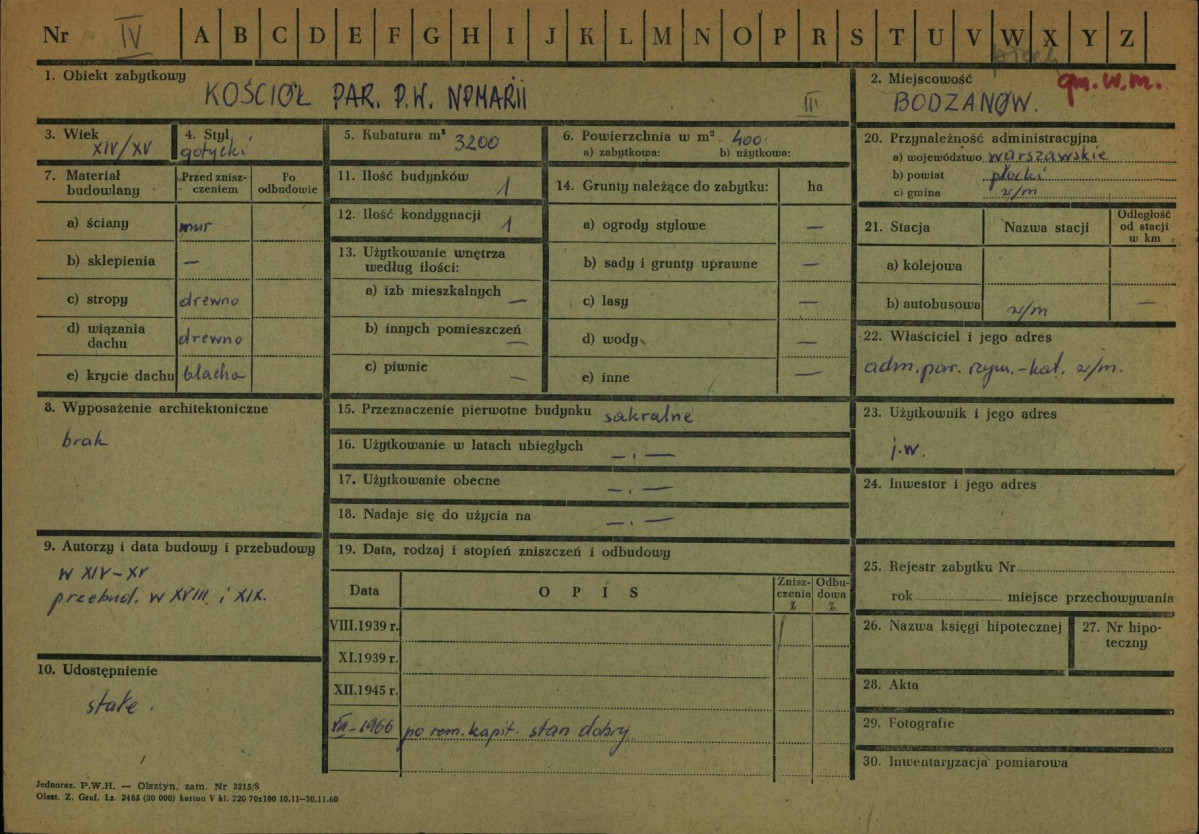 Nr IV A B C D E F G H I J K L M N O P R S T U V W X Y Z
1. Obiekt zabytkowy
KOŚCIÓŁ PAR. P.W. NPMARII
III
2. Miejscowość gm. w.m.
BODZANÓW.
3. Wiek
XIV/XV
4. Styl
gotycki
5. Kubatura m³ 3200
6. Powierzchnia w m² 400
a) zabytkowa: b) użytkowa:
20. Przynależność administracyjna
a) województwo warszawskie
b) powiat płocki
c) gmina w/m
7. Materiał budowlany
Przed zniszczeniem
Po odbudowie
a) ściany mur
b) sklepienia —
c) stropy drewno
d) wiązania dachu drewno
e) krycie dachu blacha
11. Ilość budynków 1
12. Ilość kondygnacji 1
13. Użytkowanie wnętrza
według ilości:
a) izb mieszkalnych —
b) innych pomieszczeń —
c) piwnic —
14. Grunty należące do zabytku: ha
a) ogrody stylowe —
b) sady i grunty uprawne —
c) lasy —
d) wody —
e) inne —
21. Stacja
Nazwa stacji
Odległość
od stacji
w km
a) kolejowa
b) autobusowa w/m —
22. Właściciel i jego adres
adm. par. rzym.-kat. w/m.
8. Wyposażenie architektoniczne
brak
15. Przeznaczenie pierwotne budynku sakralne
16. Użytkowanie w latach ubiegłych —.—
17. Użytkowanie obecne —.—
18. Nadaje się do użycia na —.—
23. Użytkownik i jego adres
j.w.
24. Inwestor i jego adres
9. Autorzy i data budowy i przebudowy
W XIV-XV
przebud. w XVIII i XIX.
10. Udostępnienie
stałe.
19. Data, rodzaj i stopień zniszczeń i odbudowy
Data
OPIS
Zniszczenia %
Odbudowa %
VIII.1939 r.
XI.1939 r.
XII.1945 r.
XII-1966 po rem. kapit. stan dobry
25. Rejestr zabytku Nr
rok miejsce przechowywania
26. Nazwa księgi hipotecznej
27. Nr hipoteczny
28. Akta
29. Fotografie
30. Inwentaryzacja pomiarowa
Jednoraz. P.W.H. — Olsztyn, zam. Nr 3215/S
Olszt. Z. Graf. Lz. 2485 (30 000) karton V kl. 220 70x100 10.11—30.11.60